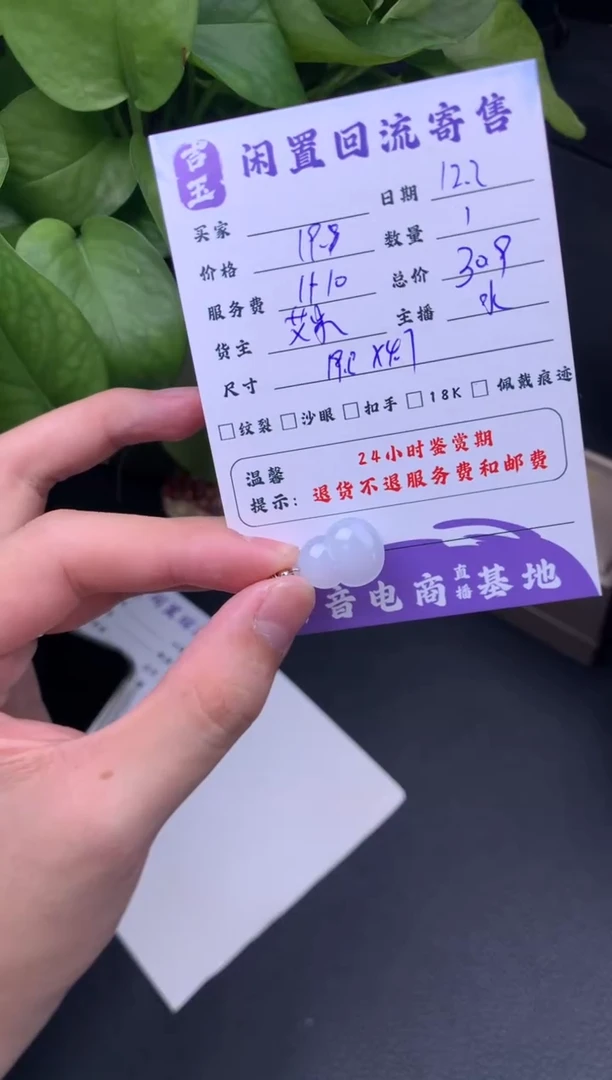 吉玉 闲置回流寄售
买家 日期 12.2
价格 19.8 数量 1
服务费 1+10 总价 309
货主 艾米 主播
尺寸
纹裂 沙眼 扣手 18K 佩戴痕迹
温馨提示: 24小时鉴赏期
退货不退服务费和邮费
音电商直播基地